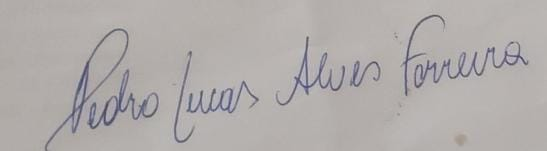 Pedro Lucas Alves Ferreira